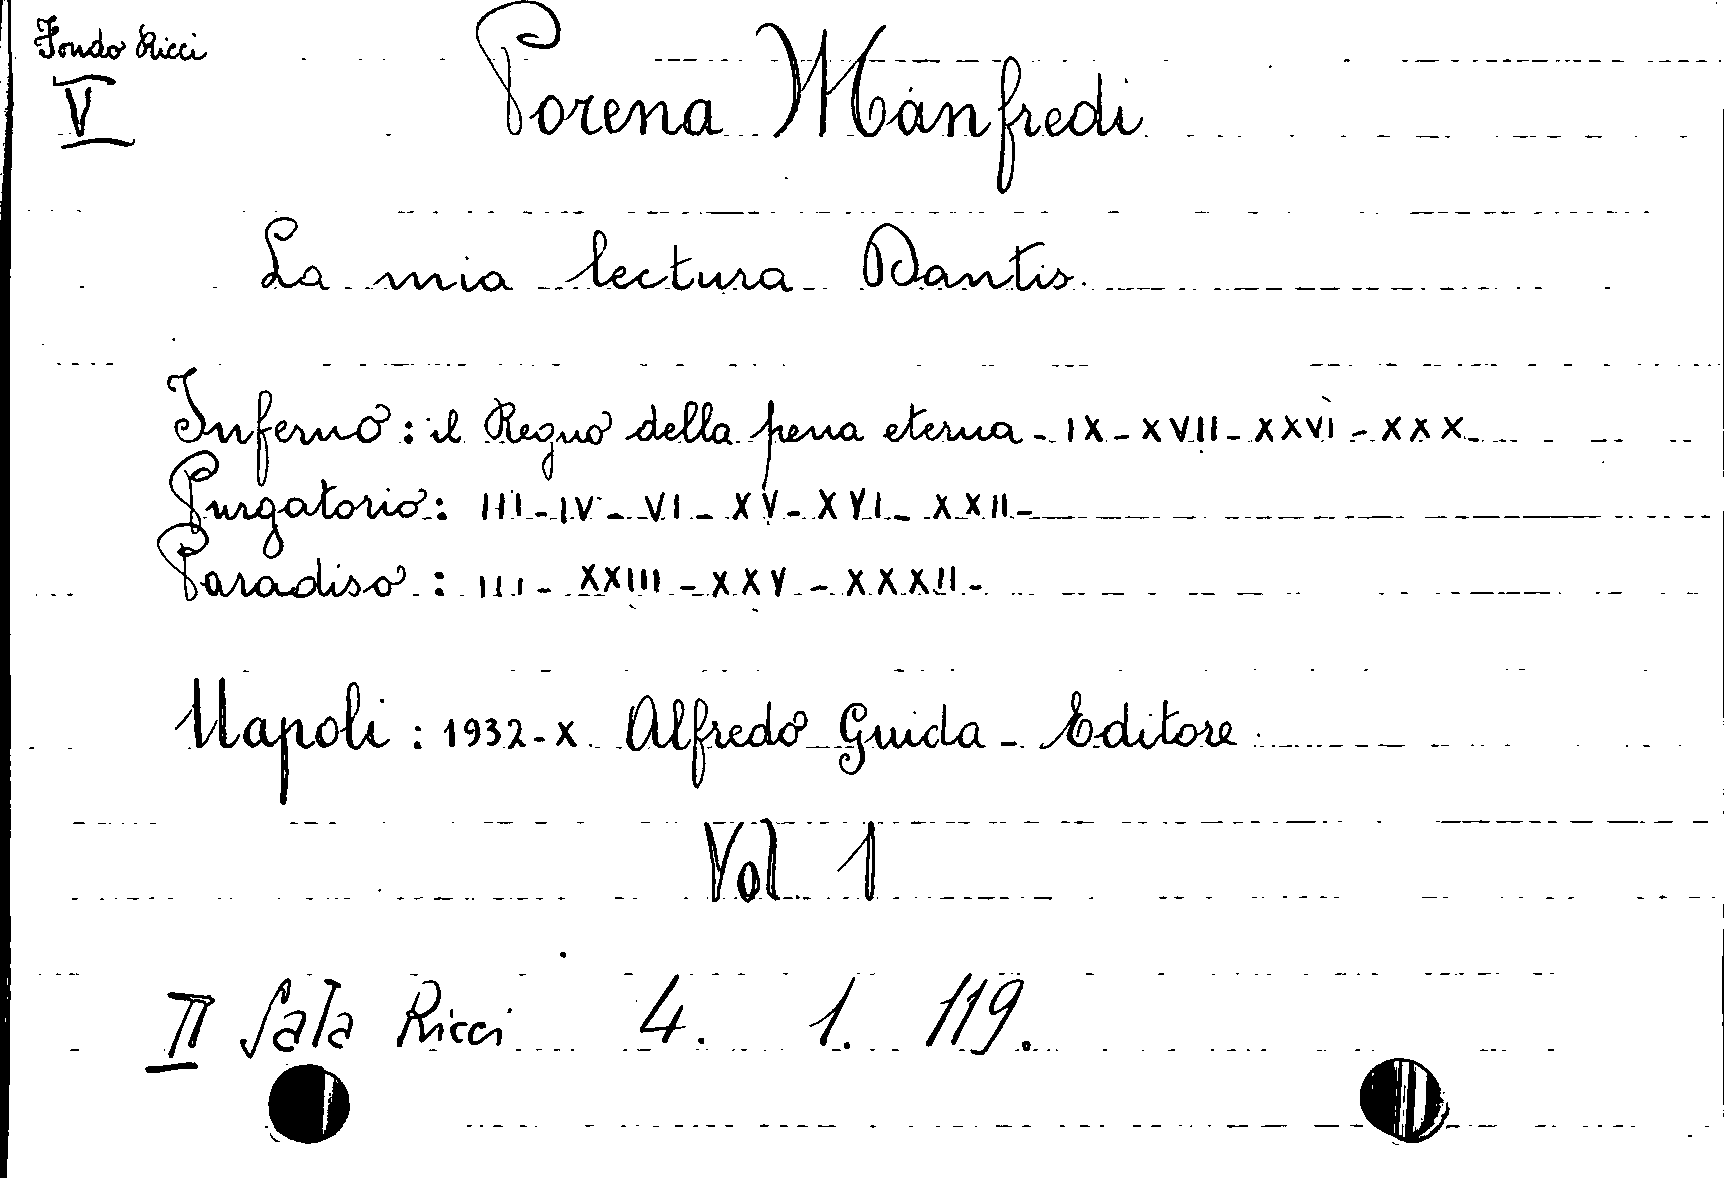 Fondo Ricci
V
Porena Manfredi
La mia lectura Dantis.
Inferno: il Regno della pena eterna - IX - XVII - XXVI - XXX -
Purgatorio: III - IV - VI - XV - XVI - XXII -
Paradiso: III - XXIII - XXV - XXXII -
Napoli: 1932-X Alfredo Guida - Editore
Vol 1
II Sala Ricci 4. 1. 119.